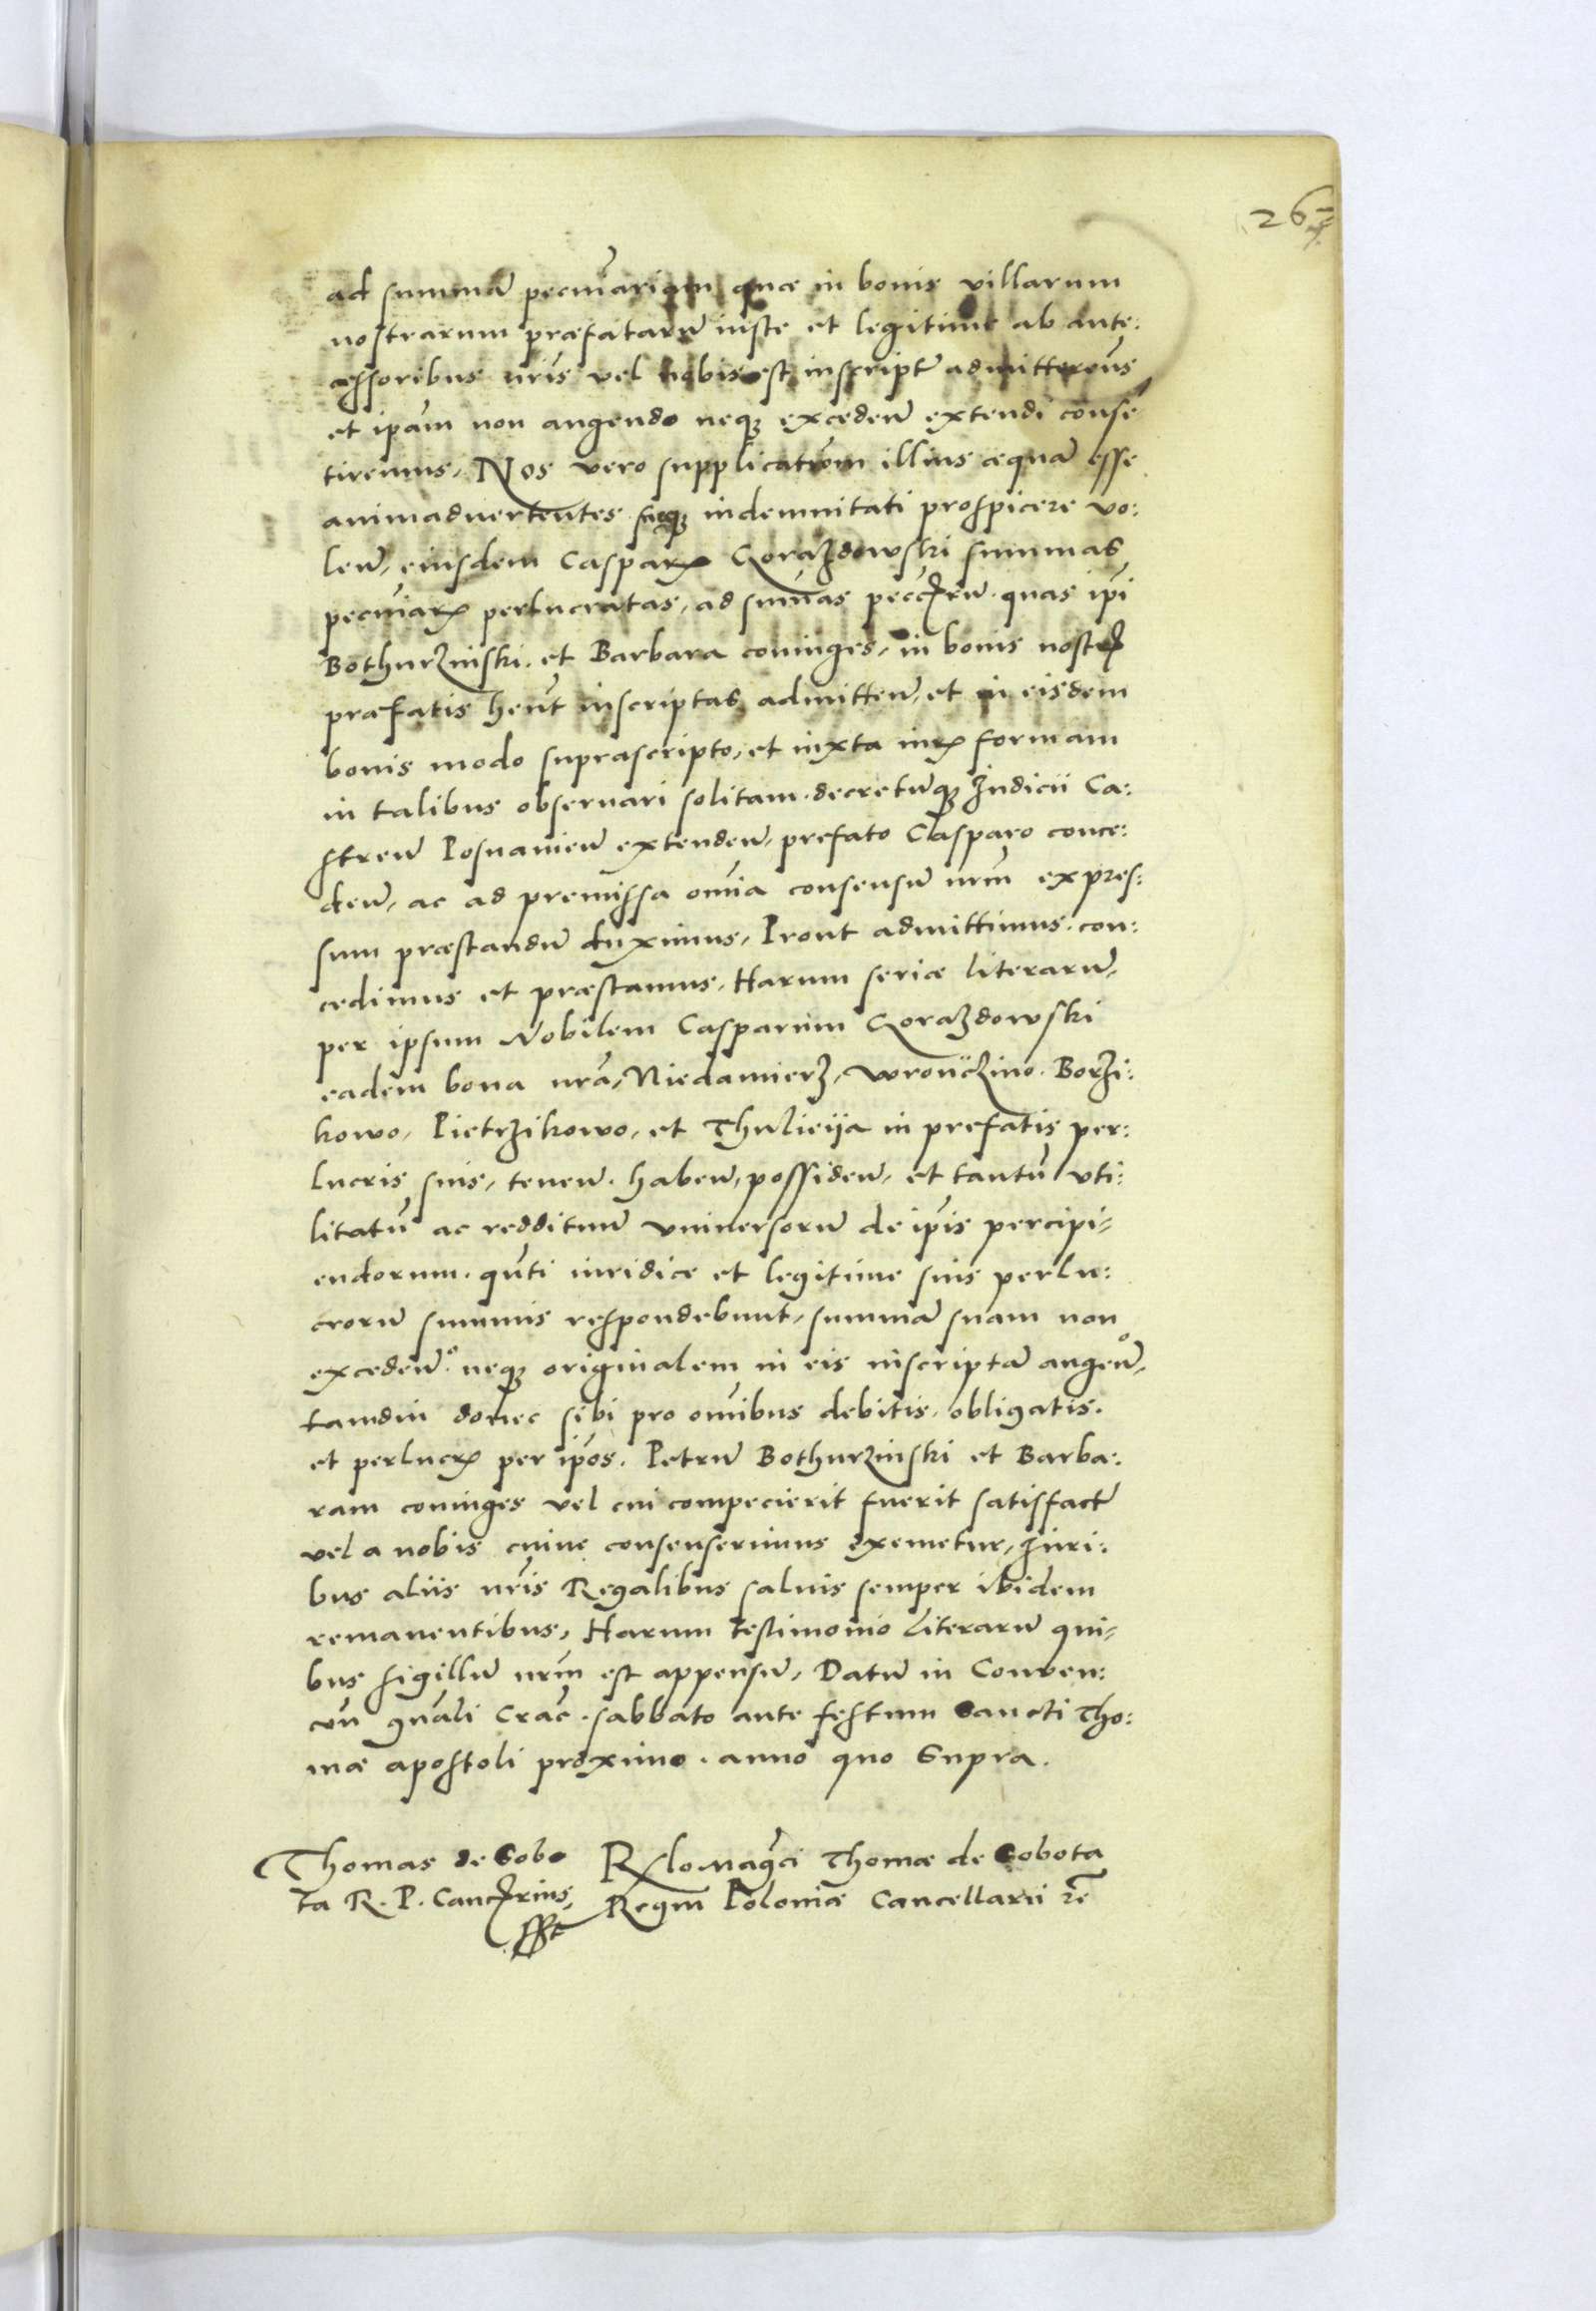 267
ad summā pecūiariam quæ in bonis villarum
nostrarum præfatarū iuste et legitime ab ante:
cessoribus nr̄is vel nobis est inscript̄ admitterem̄s
et ip̄am non augendo neq; exceden̄ extendi consē
tiremus, Nos vero supplicatiōem illius æquā esse
animaduertentes suæq; indemnitati prospicere vo:
len̄, eiusdem Casparꝝ Gorazdowski summas
pecūiarꝝ perlucratas, ad sum̄as pecc̄rū. quas ip̄i
Bothurzinski. et Barbara coniuges, in bonis nostrꝭ
præfatis hen̄t inscriptas admitten̄, et in eisdem
bonis modo suprascripto, et iuxta iurꝝ formam
in talibus obseruari solitam. decretūq; Judicii Ca:
stren̄ Posnanien̄ extenden̄, prefato Casparo conce:
den̄, ac ad premissa om̄ia consensū nr̄m expres:
sum præstandū duximus, Prout admittimus. con:
cedimus et præstamus, Harum seriæ literarū,
per ipsum Nobilem Casparum Gorazdowski
eadem bona nr̄a, Niedamierz, Wronczino. Borzi:
kowo, Pietrzikowo, et Thulieija in prefatis per:
lucris suis, tenen̄. haben̄, possiden̄, et tantū vti:
litatū ac reddituū vniuersorū de ip̄is percipi-
endorum. qūti iuridice et legitime suis perlu:
crorū summis respondebunt, summā suam non
exceden̄. neq; originalem in eis inscriptā augen̄,
tamdiu donec sibi pro om̄ibus debitis, obligatis.
et perlucrꝝ per ip̄os. Petrū Bothurzinski et Barba:
ram coniuges vel cui compecierit fuerit satisfact̄
vel a nobis cuive consenserimus exemetur, Juri:
bus aliis nr̄is Regalibus saluis semper ibidem
remanentibus, Harum testimonio literarū qui-
bus sigillū nr̄m est appensū, Datū in Conven:
cōn gn̄ali Crac̄. sabbato ante festum Sancti Tho:
mæ apostoli proximo. anno quo Supra.
Thomas de Sobo
ta R. P. Canc̄rius,
sst
Rꝉo Mag̃ci Thomæ de Sobota
Regni Poloniæ Cancellarii rē